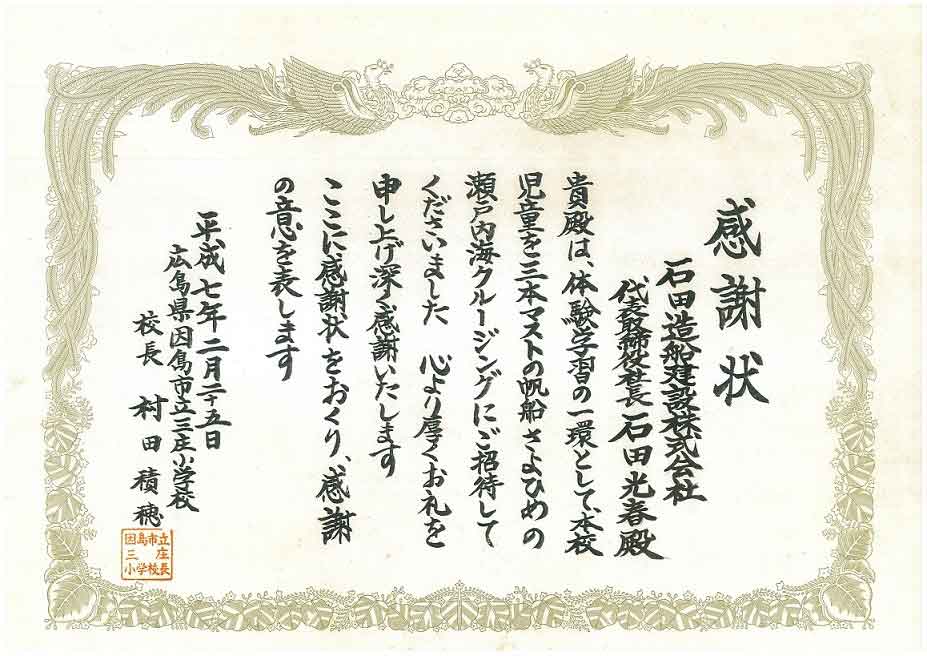 感謝状
石田造船建設株式会社
代表取締役社長 石田光春殿
貴殿は、体験学習の一環として、本校
児童を三本マストの帆船さよひめの
瀬戸内海クルージングにご招待して
くださいました 心より厚くお礼を
申し上げ深く感謝いたします
ここに感謝状をおくり、感謝
の意を表します
平成七年二月二十五日
広島県因島市立三庄小学校
校長 村田積穂
因島市立
三庄
小学校長